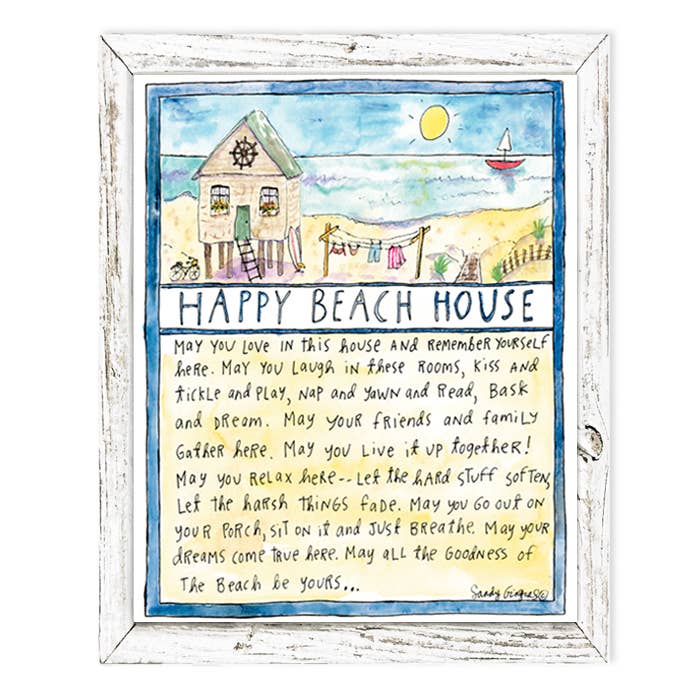 HAPPY BEACH HOUSE
MAY YOU LOVE IN THIS HOUSE AND REMEMBER YOURSELF
HERE. MAY YOU LAUGH IN THESE ROOMS, KISS AND
TICKLE AND PLAY, NAP AND YAWN AND READ, BASK
AND DREAM. MAY YOUR FRIENDS AND FAMILY
GATHER HERE. MAY YOU LIVE IT UP TOGETHER!
MAY YOU RELAX HERE -- LET THE HARD STUFF SOFTEN,
LET THE HARSH THINGS FADE. MAY YOU GO OUT ON
YOUR PORCH, SIT ON IT AND JUST BREATHE. MAY YOUR
DREAMS COME TRUE HERE. MAY ALL THE GOODNESS OF
THE BEACH BE YOURS...
Sandy Gingras ©